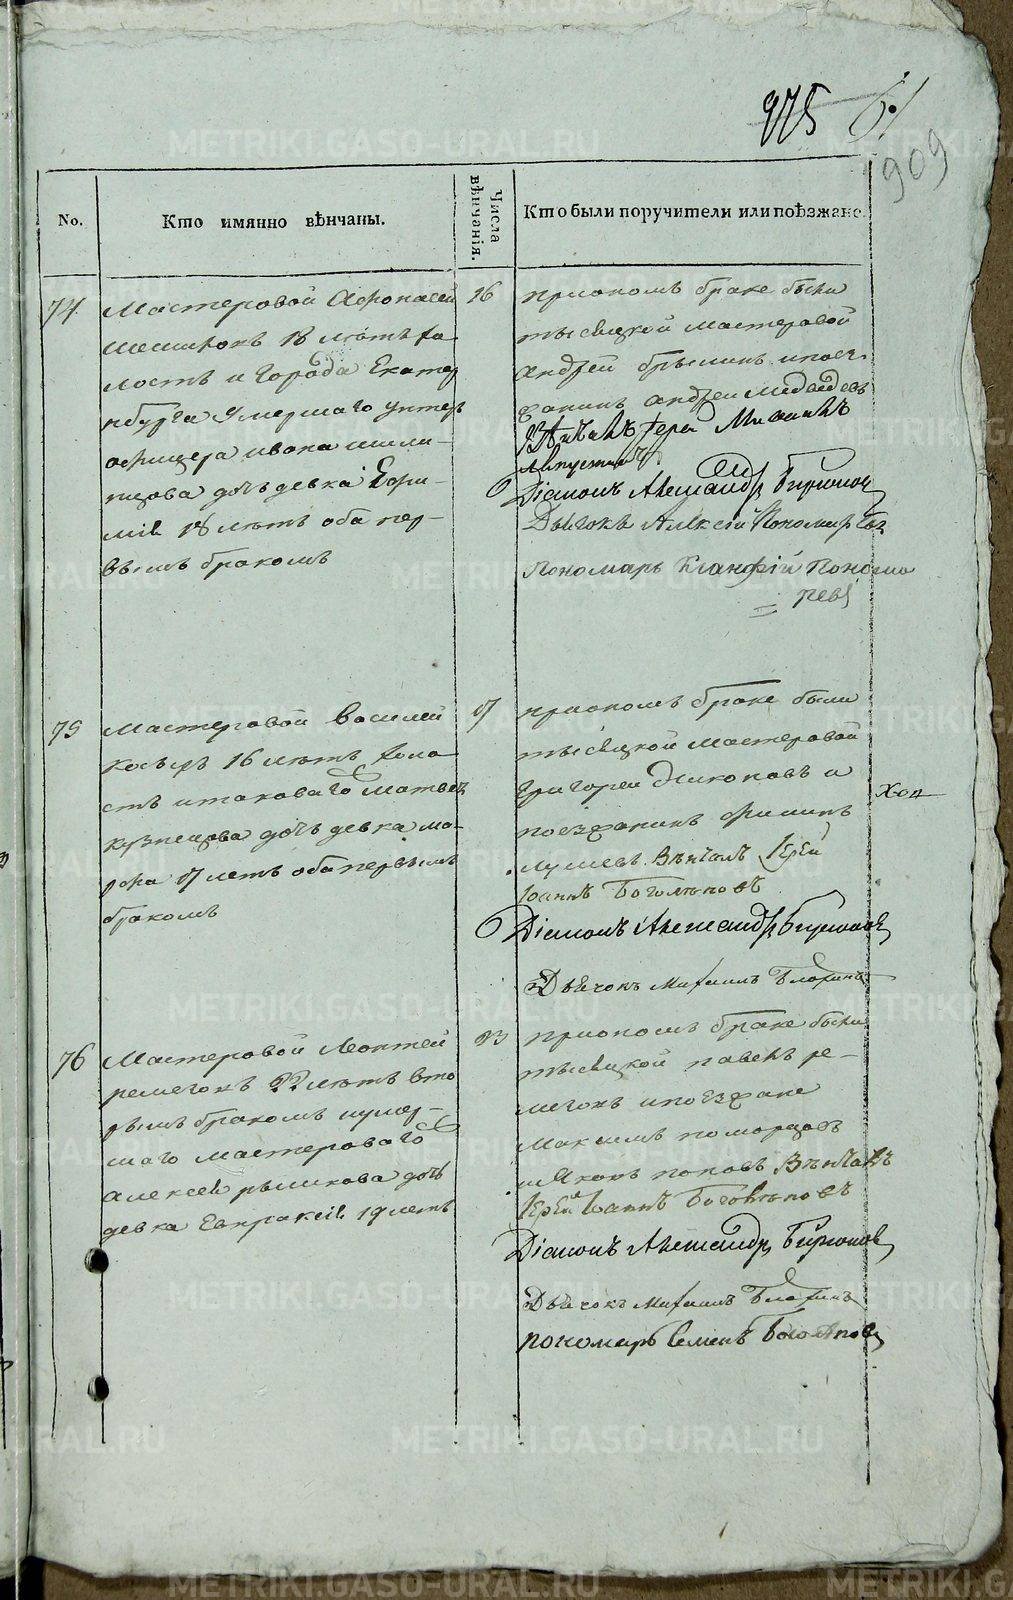 975
909
No.
Кто имянно вѣнчаны.
Числа вѣнчанія.
Кто были поручители или поѣзжане.
74
Мастеровой Афонасей
18 лѣтъ хо
лостъ и города Екатер
нбурга умершаго унтер
офицера ивана
дочь девка Ефи-
мiя 18 лѣтъ оба пер-
вымъ бракомъ
16
при ономъ браке были
тысяцкой мастеровой
андрей и поез-
жанинъ андреи медведевъ
Вѣнчалъ Iерей Михаилъ
Дiаконъ Александръ Бирюковъ
Дьячокъ Алексiй Пономаревъ
Пономарь Пономо
ревъ
75
Мастеровой Василей
16 лѣтъ холо
стъ и таковаго матвея
кузнецова дочь девка ма-
рфа 17 летъ оба первымъ
бракомъ
17
при ономъ браке были
тысяцкой мастеровой
Григореи и
поезжанинъ филипъ
Вѣнчалъ Iерей
Iоаннъ Боголѣповъ
Дiаконъ Александръ Бирюковъ
Дьячокъ Михаилъ
Хол
76
Мастеровой Леонтей
ремезовъ 22 лѣтъ вто
рымъ бракомъ и умер-
шаго мастероваго
алексея рыжкова дочь
девка Евпраксия 19 летъ
23
при ономъ браке были
тысяцкой павелъ ре-
мезовъ и поезжане
максимъ поморцовъ
и яковъ поповъ Вѣнчалъ
Iерей Iоаннъ Боголѣповъ
Дiаконъ Александръ Бирюковъ
Дьячокъ Михаилъ
пономарь Семенъ Боголѣповъ
METRIKI.GASO-URAL.RU